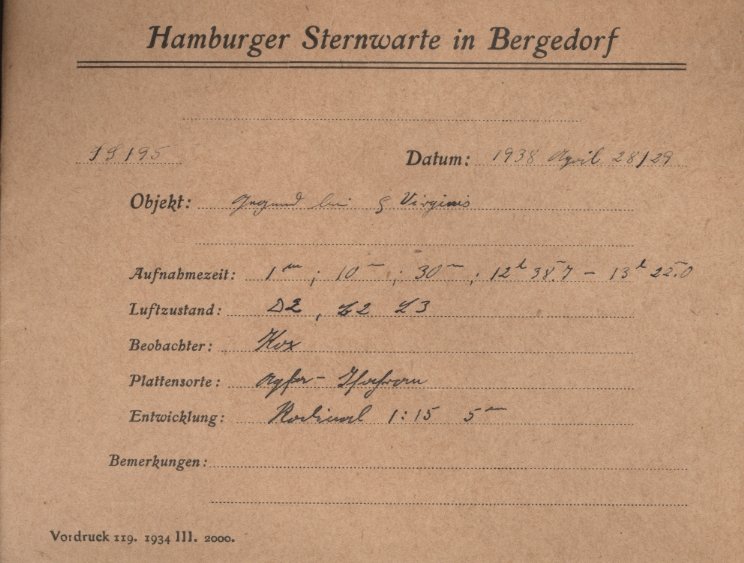 Hamburger Sternwarte in Bergedorf
Datum: 1938 April 28/29
Objekt: Gegend bei Virginis
Aufnahmezeit: 1m ; 10m ; 30m ; 12h 38m.7 – 13h 22m.0
Luftzustand: D2, L2 L3
Beobachter: Kox
Plattensorte: Agfa - Isochrom
Entwicklung: Rodinal 1:15 5m
Bemerkungen:
Vordruck 119. 1934 III. 2000.